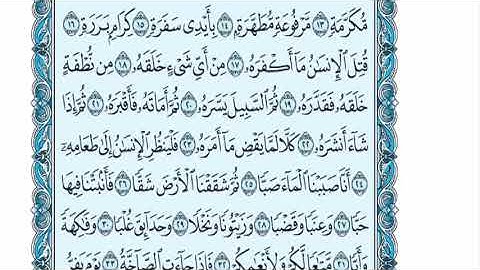 مُّكَرَّمَةٍ ١٣ مَّرْفُوعَةٍ مُّطَهَّرَةٍۭ ١٤ بِأَيْدِى سَفَرَةٍ ١٥ كِرَامٍۭ بَرَرَةٍ ١٦
قُتِلَ ٱلْإِنسَٰنُ مَآ أَكْفَرَهُۥ ١٧ مِنْ أَىِّ شَىْءٍ خَلَقَهُۥ ١٨ مِن نُّطْفَةٍ
خَلَقَهُۥ فَقَدَّرَهُۥ ١٩ ثُمَّ ٱلسَّبِيلَ يَسَّرَهُۥ ٢٠ ثُمَّ أَمَاتَهُۥ فَأَقْبَرَهُۥ ٢١ ثُمَّ إِذَا
شَآءَ أَنشَرَهُۥ ٢٢ كَلَّا لَمَّا يَقْضِ مَآ أَمَرَهُۥ ٢٣ فَلْيَنظُرِ ٱلْإِنسَٰنُ إِلَىٰ طَعَامِهِۦٓ
٢٤ أَنَّا صَبَبْنَا ٱلْمَآءَ صَبًّا ٢٥ ثُمَّ شَقَقْنَا ٱلْأَرْضَ شَقًّا ٢٦ فَأَنۢبَتْنَا فِيهَا
حَبًّا ٢٧ وَعِنَبًا وَقَضْبًا ٢٨ وَزَيْتُونًا وَنَخْلًا ٢٩ وَحَدَآئِقَ غُلْبًا ٣٠ وَفَٰكِهَةً
وَأَبًّا ٣١ مَّتَٰعًا لَّكُمْ وَلِأَنْعَٰمِكُمْ ٣٢ فَإِذَا جَآءَتِ ٱلصَّآخَّةُ ٣٣ يَوْمَ يَفِرُّ